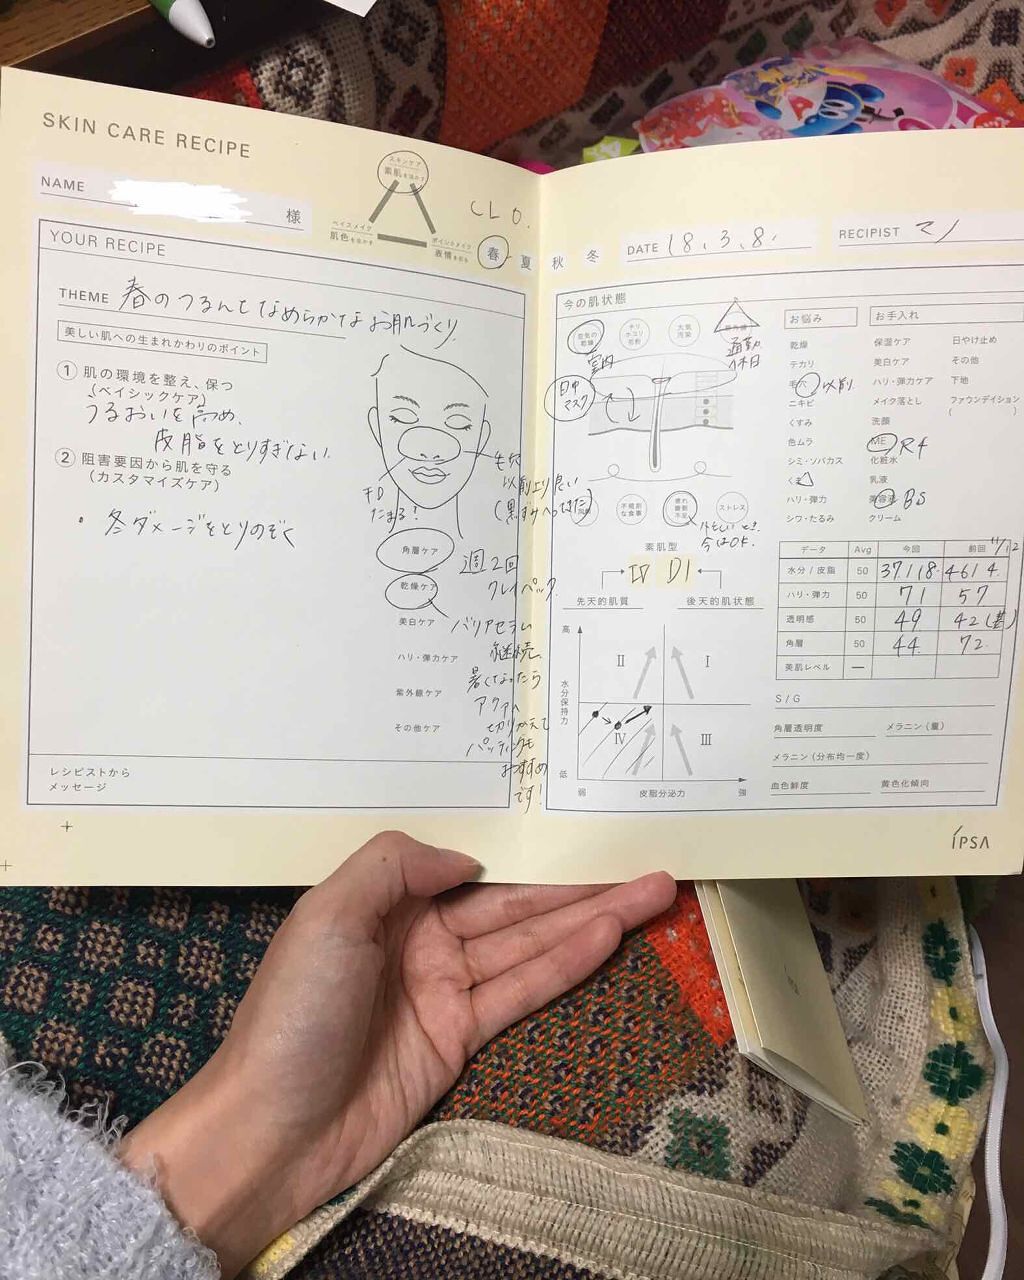 SKIN CARE RECIPE
NAME
様
スキンケア
素肌を活かす
ベイスメイク
肌色を活かす
ポイントメイク
表情を彩る
CL O.
春 夏 秋 冬
DATE 18.3.8.
RECIPIST マノ
YOUR RECIPE
THEME 春のつるんとなめらかなお肌づくり
美しい肌への生まれかわりのポイント
① 肌の環境を整え、保つ
(ベイシックケア)
つるおいを高め、
皮脂をとりすぎない
② 阻害要因から肌を守る
(カスタマイズケア)
・冬ダメージをとりのぞく
毛穴
以前より良い
(黒ずみへってきた)
たまる!
角層ケア
週2回
クレイパック
乾燥ケア
美白ケア
バリアセラム
継続、
ハリ・弾力ケア
暑くなったら
紫外線ケア
アクアへ
その他ケア
切りかえて
パッティングも
おすすめ
です!
レシピストから
メッセージ
今の肌状態
空気の
乾燥
チリ
ホコリ
花粉
大気
汚染
室内
通勤
休日
日中
マスク
不規則
な食事
疲れ
睡眠
不足
ストレス
忙しいとき、
今はOK.
素肌型
IV D1
先天的肌質
後天的肌状態
高
水分保持力
低
II
I
IV
III
弱
皮脂分泌力
強
お悩み
お手入れ
乾燥
テカリ
毛穴 以前
ニキビ
くすみ
色ムラ
シミ・ソバカス
くま
ハリ・弾力
シワ・たるみ
保湿ケア
美白ケア
ハリ・弾力ケア
メイク落とし
洗顔
ME R4
化粧水
乳液
美容液 BS
クリーム
日やけ止め
その他
下地
ファウンデイション
( )
データ Avg 今回 前回 11/12
水分/皮脂 50 37.118. 4614.
ハリ・弾力 50 71 57
透明感 50 49 42(基)
角層 50 44. 72.
美肌レベル —
S / G
角層透明度
メラニン(量)
メラニン(分布均一度)
血色鮮度
黄色化傾向
IPSA